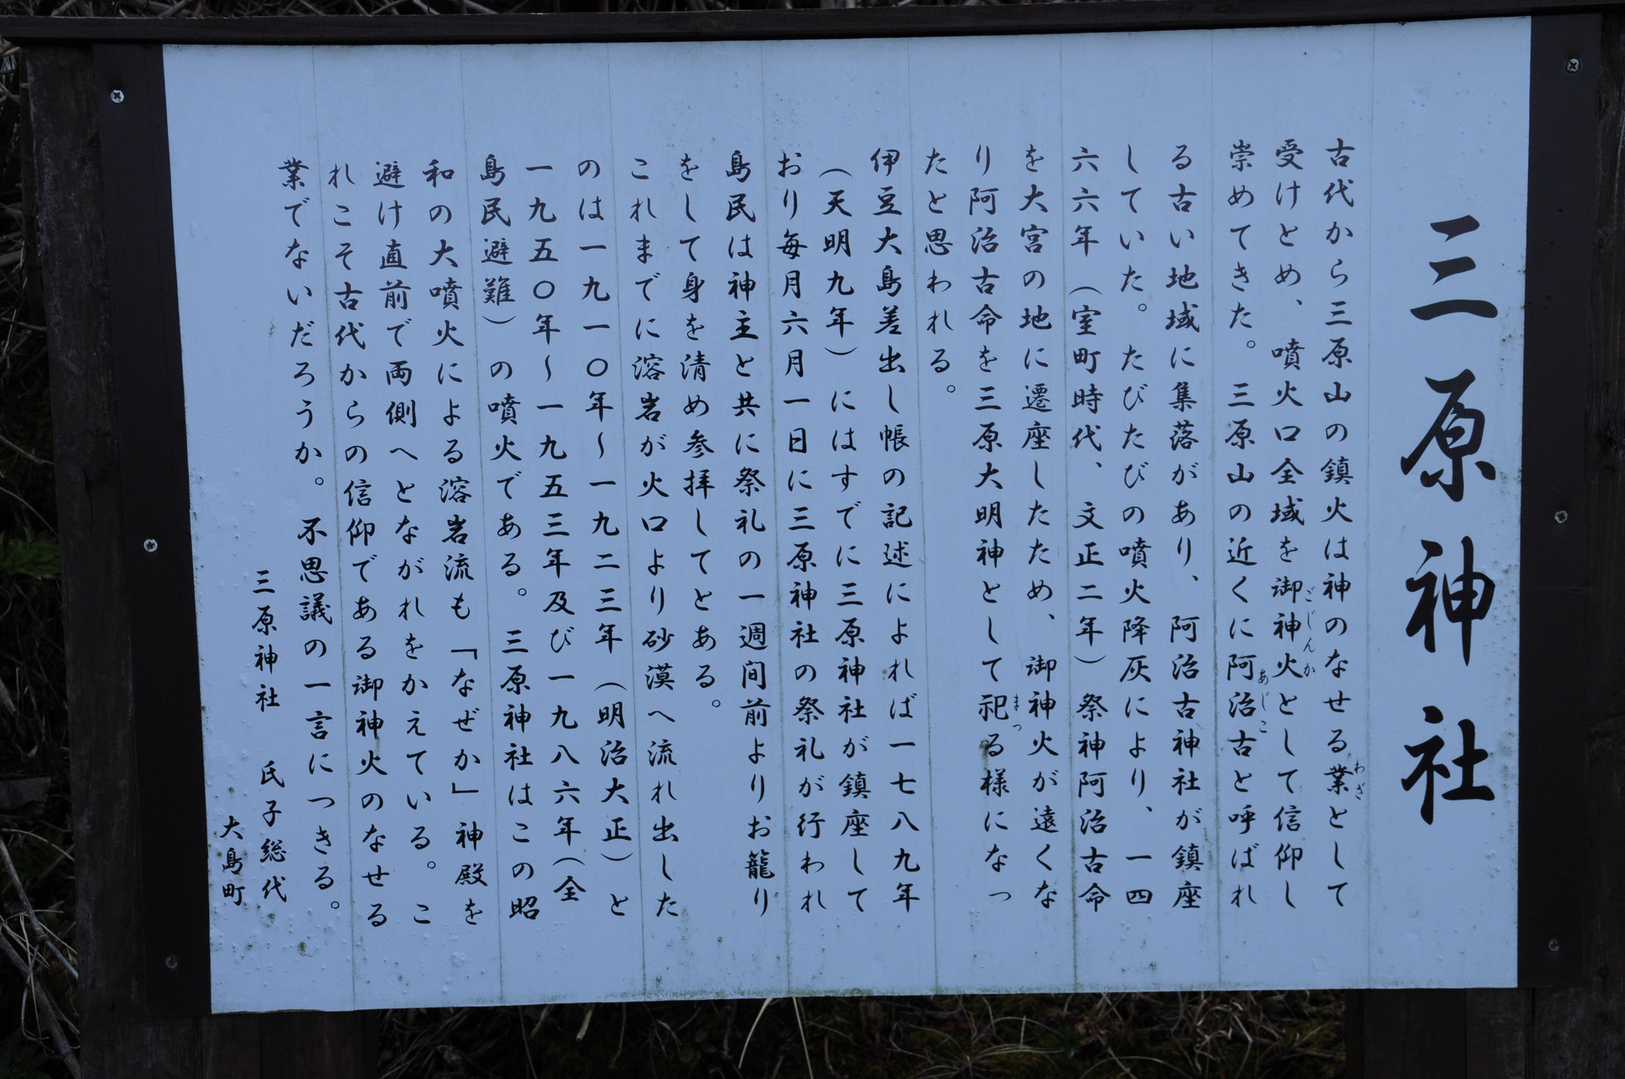 三原神社
古代から三原山の鎮火は神のなせる業として
わざ
受けとめ、噴火口全域を御神火として信仰し
ごじんか
崇めてきた。三原山の近くに阿治古と呼ばれ
あじこ
る古い地域に集落があり、阿治古神社が鎮座
していた。たびたびの噴火降灰により、一四
六六年（室町時代、文正二年）祭神阿治古命
を大宮の地に遷座したため、御神火が遠くな
り阿治古命を三原大明神として祀る様になっ
まつ
たと思われる。
伊豆大島差出し帳の記述によれば一七八九年
（天明九年）にはすでに三原神社が鎮座して
おり毎月六月一日に三原神社の祭礼が行われ
島民は神主と共に祭礼の一週間前よりお籠り
をして身を清め参拝してとある。
これまでに溶岩が火口より砂漠へ流れ出した
のは一九一〇年〜一九二三年（明治大正）と
一九五〇年〜一九五三年及び一九八六年（全
島民避難）の噴火である。三原神社はこの昭
和の大噴火による溶岩流も「なぜか」神殿を
避け直前で両側へとながれをかえている。こ
れこそ古代からの信仰である御神火のなせる
業でないだろうか。不思議の一言につきる。
三原神社　氏子総代
大島町